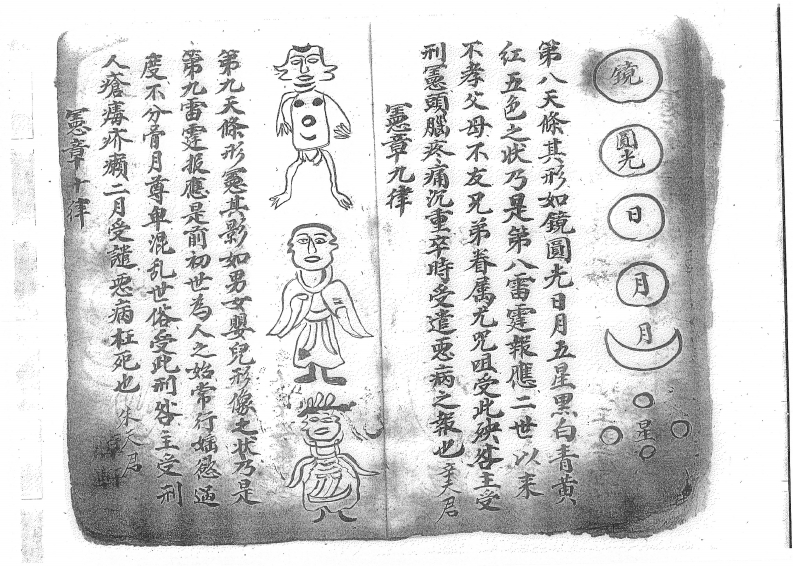 鏡
圓光
日
月
月
星
第八天條其形如鏡圓光日月五星黑白青黃
紅五色之狀乃是第八雷霆報應二世以来
不孝父母不友兄弟眷属尤咒咀受此殃咎主受
刑憲頭腦疼痛沉重卒時受遣惡病之報也
憲章九律
第九天條形憲其影如男女嬰兒形像之狀乃是
第九雷霆报應是前初世為人之始常行婬慾過
度不分骨月尊卑混乱世俗受此刑咎主受刑
人瘡癆疥癩二月受譴惡病枉死也 朱天君
憲章十律